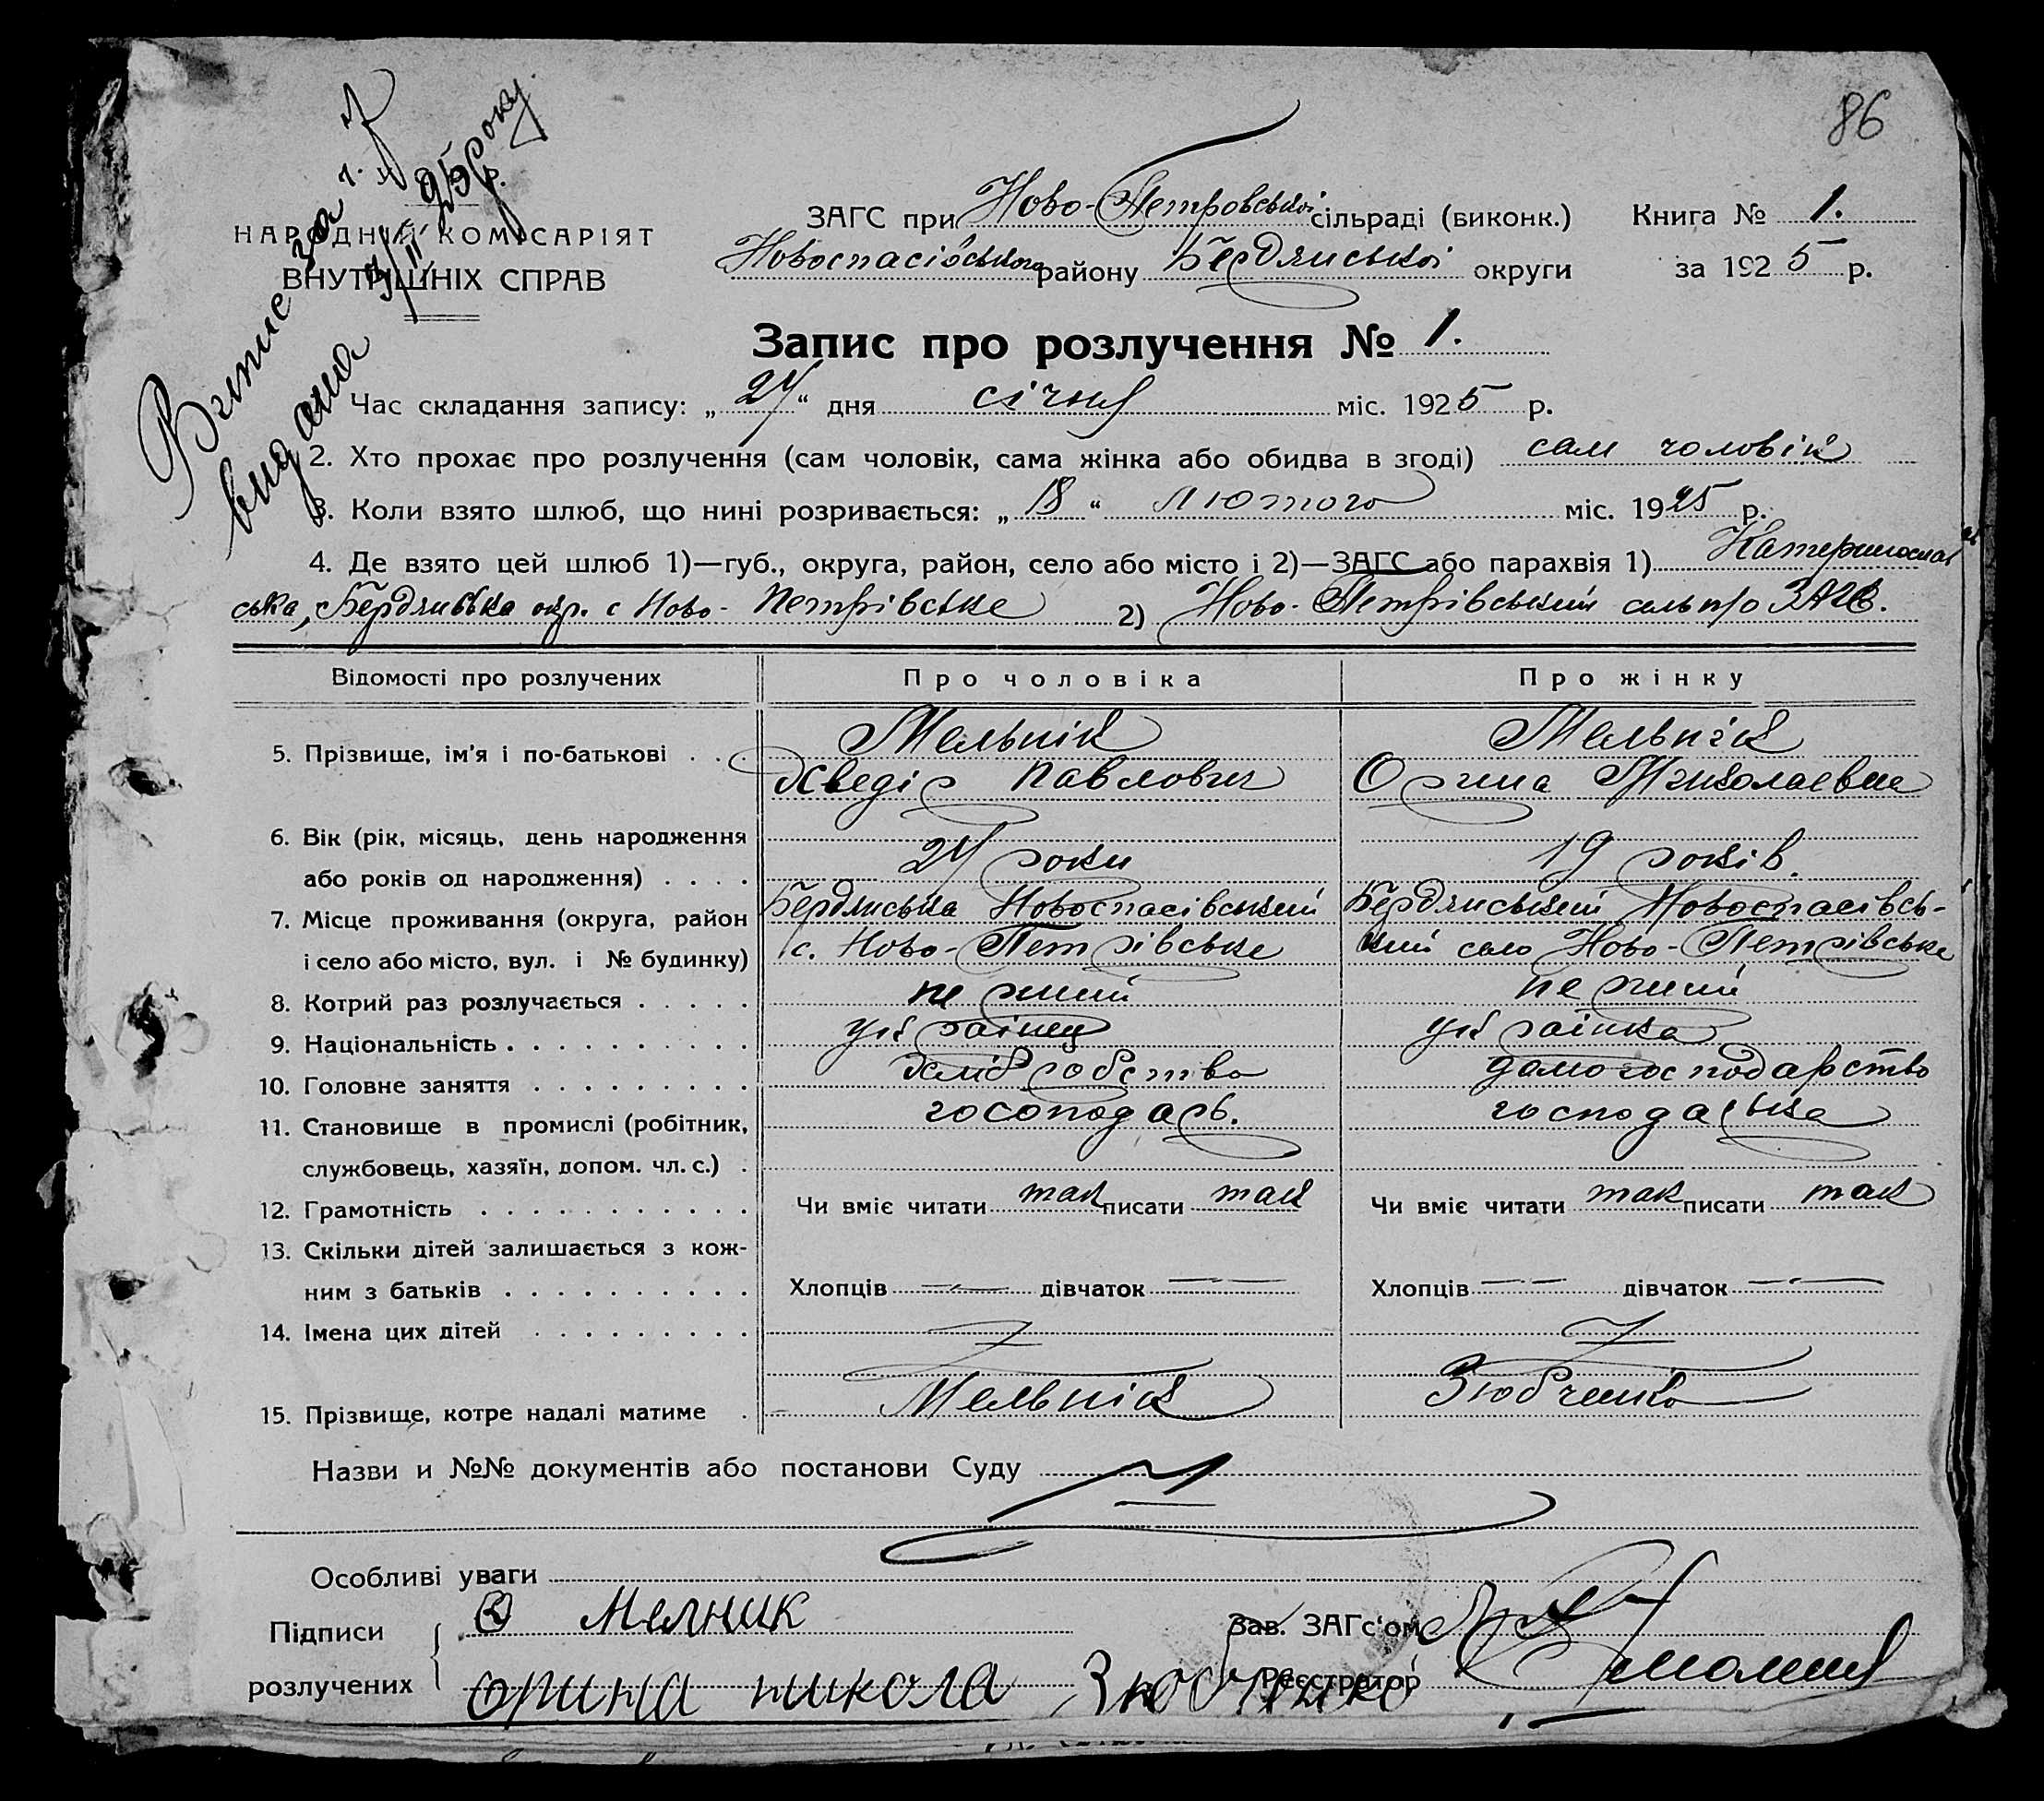 86
Витис за ч. 7
видана 3/II 25 року.
НАРОДНІЙ КОМІСАРІЯТ
ВНУТРІШНІХ СПРАВ
ЗАГС при Ново-Петровської сільраді (виконк.) Книга № 1.
Новоспасівського району Бердянської округи за 1925 р.
Запис про розлучення № 1.
Час складання запису: „24“ дня січня міс. 1925 р.
2. Хто прохає про розлучення (сам чоловік, сама жінка або обидва в згоді) сам чоловік
3. Коли взято шлюб, що нині розривається: „18“ лютого міс. 1925 р.
4. Де взято цей шлюб 1)—губ., округа, район, село або місто і 2)—ЗАГС або парахвія 1) Катеринослав
ська, Бердянська окр. с Ново-Петрівське 2) Ново-Петрівський ЗАГС.
Відомості про розлучених Про чоловіка Про жінку
5. Прізвище, ім'я і по-батькові . . . Мельнік Мельнік
Хведір Павлович Орина Миколаевна
6. Вік (рік, місяць, день народження
або років од народження) . . . . 24 роки 19 років.
7. Місце проживання (округа, район Бердянська Новоспасівський Бердянський Новоспасівсь-
і село або місто, вул. і № будинку) с. Ново-Петрівське кий село Ново-Петрівське
8. Котрий раз розлучається . . . . . перший перший
9. Національність . . . . . . . . . . українц українка
10. Головне заняття . . . . . . . . . хліборобство домогосподарство
11. Становище в промислі (робітник, госоподарь. господарька
службовець, хазяїн, допом. чл. с.) .
12. Грамотність . . . . . . . . . . . Чи вміє читати так писати так Чи вміє читати так писати так
13. Скільки дітей залишається з кож-
ним з батьків . . . . . . . . . . Хлопців — дівчаток — Хлопців — дівчаток —
14. Імена цих дітей . . . . . . . . .
15. Прізвище, котре надалі матиме . Мельнік Зюбченко
Назви и №№ документів або постанови Суду
Особливі уваги
Підписи Мелник Зав. ЗАГс'ом
розлучених орина никола Зюбченко Реєстратор